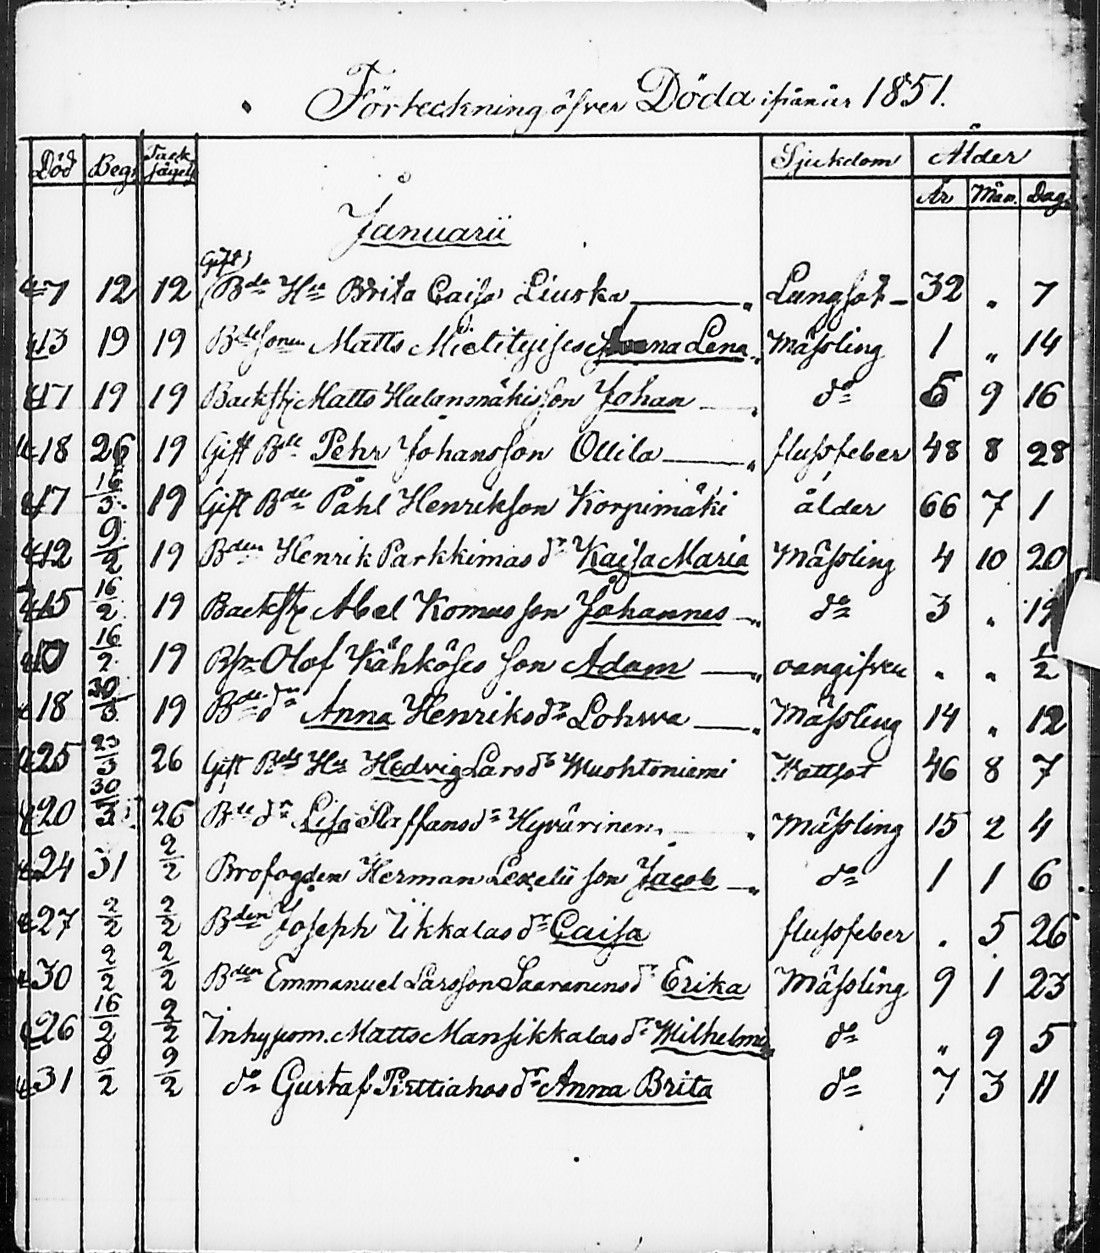 Förteckning öfver Döda ifrån år 1851.
Död Begr. Tack sägels Sjukdom Ålder
År Mån. Dag.
Januarii
Gift
7 12 12 Bde Hu Brita Caisa Liuska Lungsot 32 " 7
13 19 19 Bdesonen Matts Anna Lena Mässling 1 " 14
17 19 19 Backstg Matts Hulanmäkis son Johan do 5 9 16
18 26 19 Gift Bde Pehr Johansson Ollila flussfeber 48 8 28
17 16/3 19 Gift Bde Påhl Henrikson Korpimäki ålder 66 7 1
12 9/2 19 Bden Henrik Parkkimas dr Kaisa Maria Mässling 4 10 20
15 16/2 19 Backstg Abel Komus son Johannes do 3 " 19
10 16/2 19 Olof Kähköses son Adam oangifven " " 1/2
18 30/3 19 Bde dr Anna Henriksdr Lohwa Mässling 14 " 12
25 23/3 26 Gift Bde Hu Hedvig Larsdr Muohtoniemi Wattsot 46 8 7
20 30/3 26 Bde dr Lisa Staffansdr Hyvärinen Mässling 15 2 4
24 31 2/2 Brofogden Herman Lexelii son Jacob do 1 1 6
27 2/2 2/2 Bden Joseph Ukkalas dr Caisa flussfeber " 5 26
30 2/2 2/2 Bden Emmanuel Larsson Saaranens dr Erika Mässling 9 1 23
26 16/2 2/2 Inhysesm. Matts Mansikkalas dr Wilhelmi do " 9 5
31 9/2 9/2 do Gustaf Pirttiahos dr Anna Brita do 7 3 11